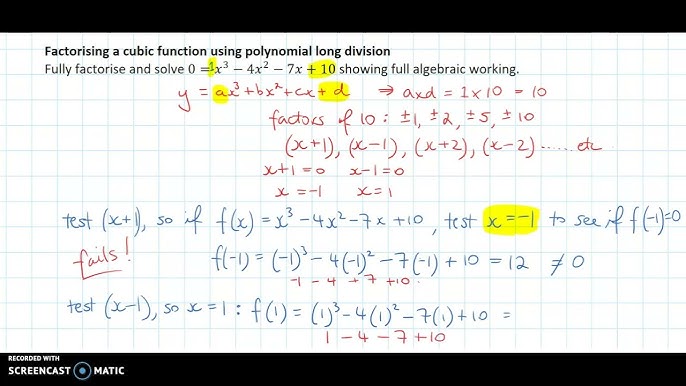 Factorising a cubic function using polynomial long division
Fully factorise and solve 0 = 1x³ − 4x² − 7x + 10 showing full algebraic working.
y = ax³ + bx² + cx + d ⇒ axd = 1 x 10 = 10
factors of 10 : ±1, ±2, ±5, ±10
(x+1), (x−1), (x+2), (x−2) ...... etc
x+1=0 x−1=0
x = −1 x = 1
test (x+1), so if f(x) = x³ − 4x² − 7x + 10, test x = −1 to see if f(−1)=0
fails! f(−1) = (−1)³ − 4(−1)² − 7(−1) + 10 = 12 ≠ 0
−1 − 4 + 7 + 10.
test (x−1), so x = 1 : f(1) = (1)³ − 4(1)² − 7(1) + 10 =
1 − 4 − 7 + 10
RECORDED WITH
SCREENCAST MATIC